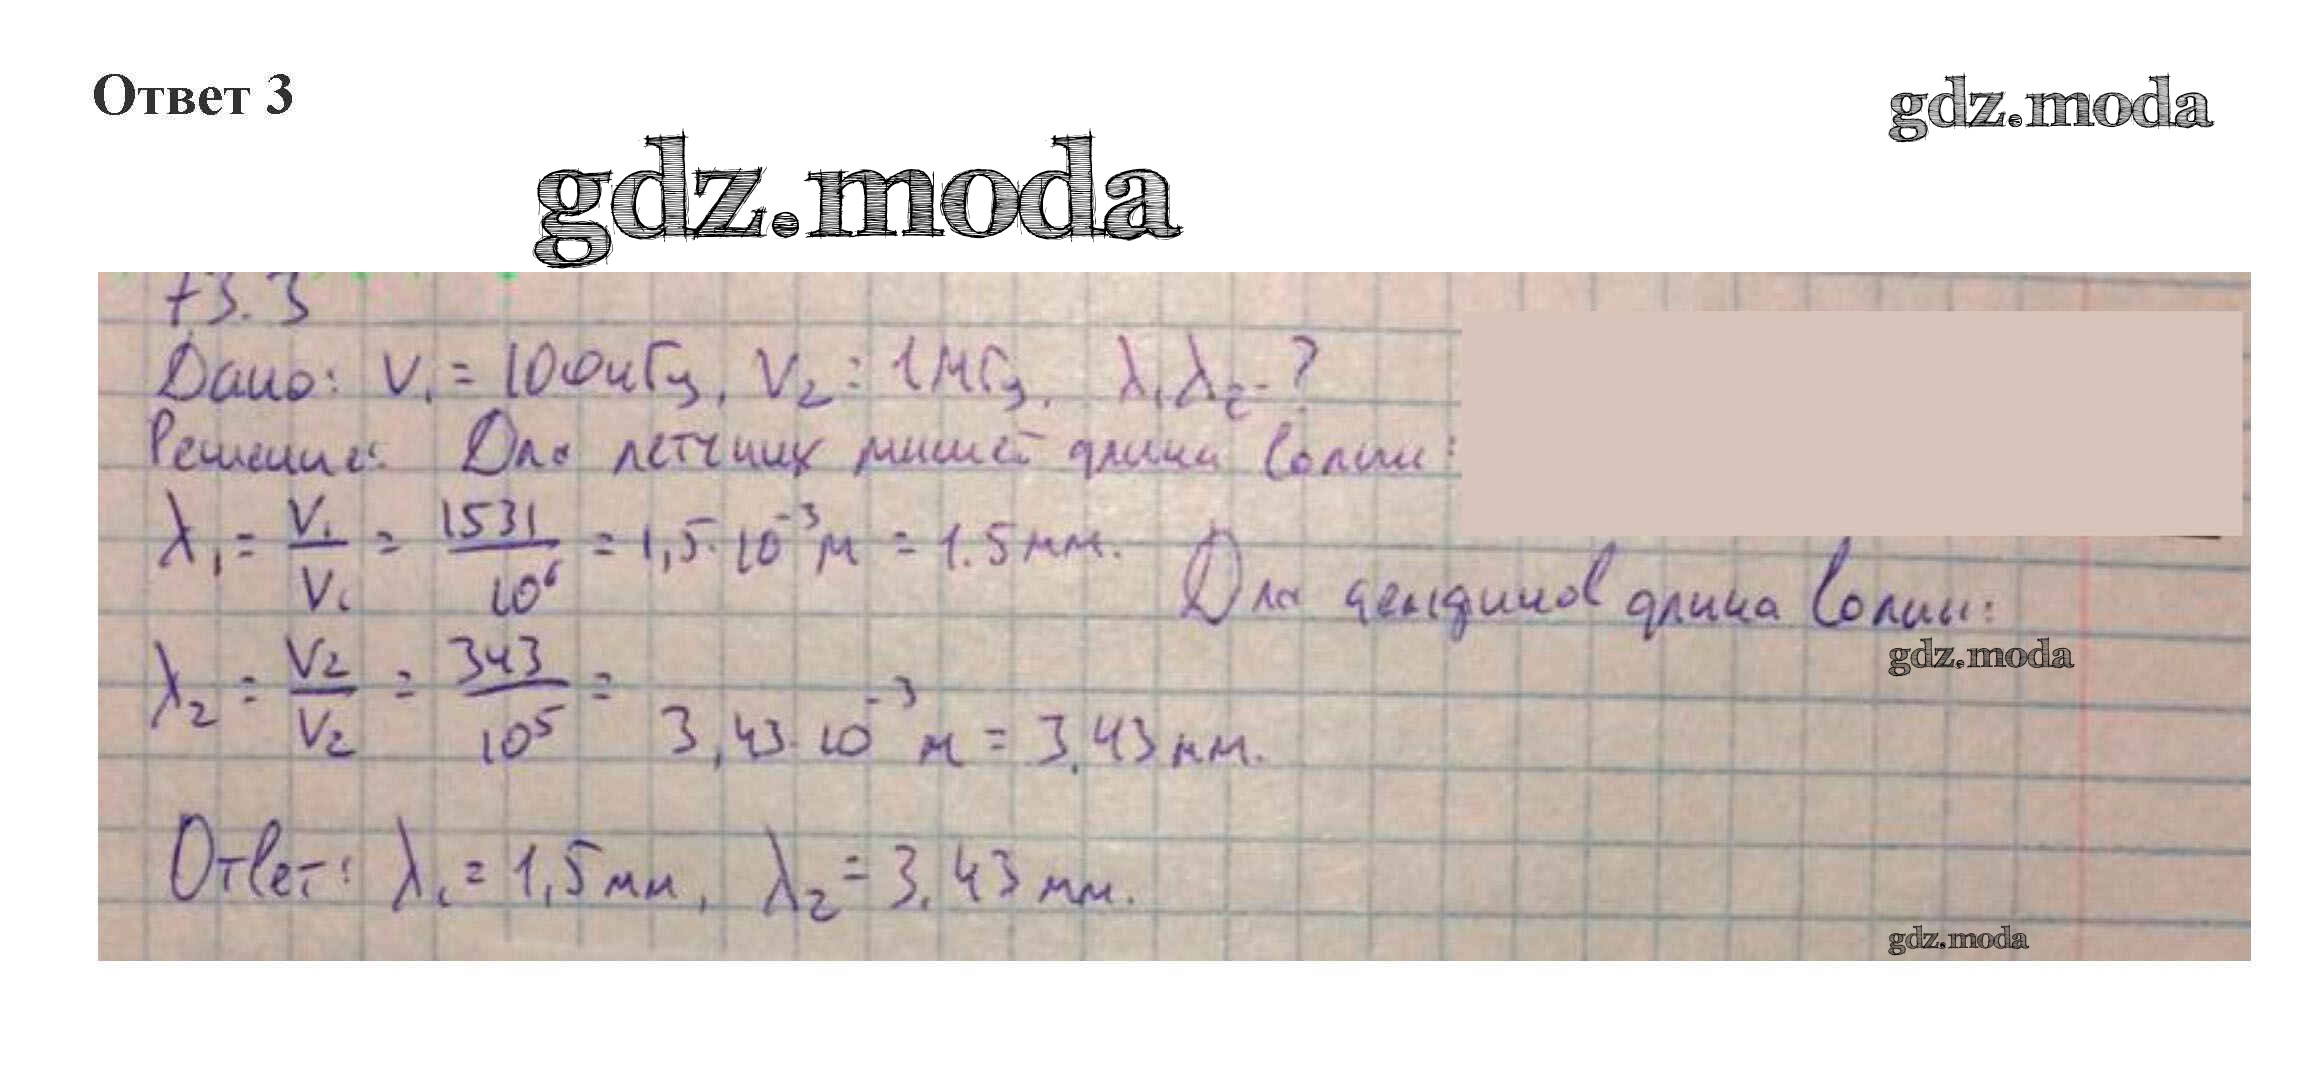 Ответ 3
gdz.moda
gdz.moda
73.3
Дано: ν₁ = 100 кГц, ν₂ = 1 МГц. λ₁ λ₂ - ?
Решение: Для летучих мышей длина волны:
λ₁ = V₁ / ν₁ = 1531 / 10⁶ = 1,5 · 10⁻³ м = 1.5 мм.
Для дельфинов длина волны:
gdz.moda
λ₂ = V₂ / ν₂ = 343 / 10⁵ = 3,43 · 10⁻³ м = 3,43 мм.
Ответ: λ₁ = 1,5 мм, λ₂ = 3,43 мм.
gdz.moda